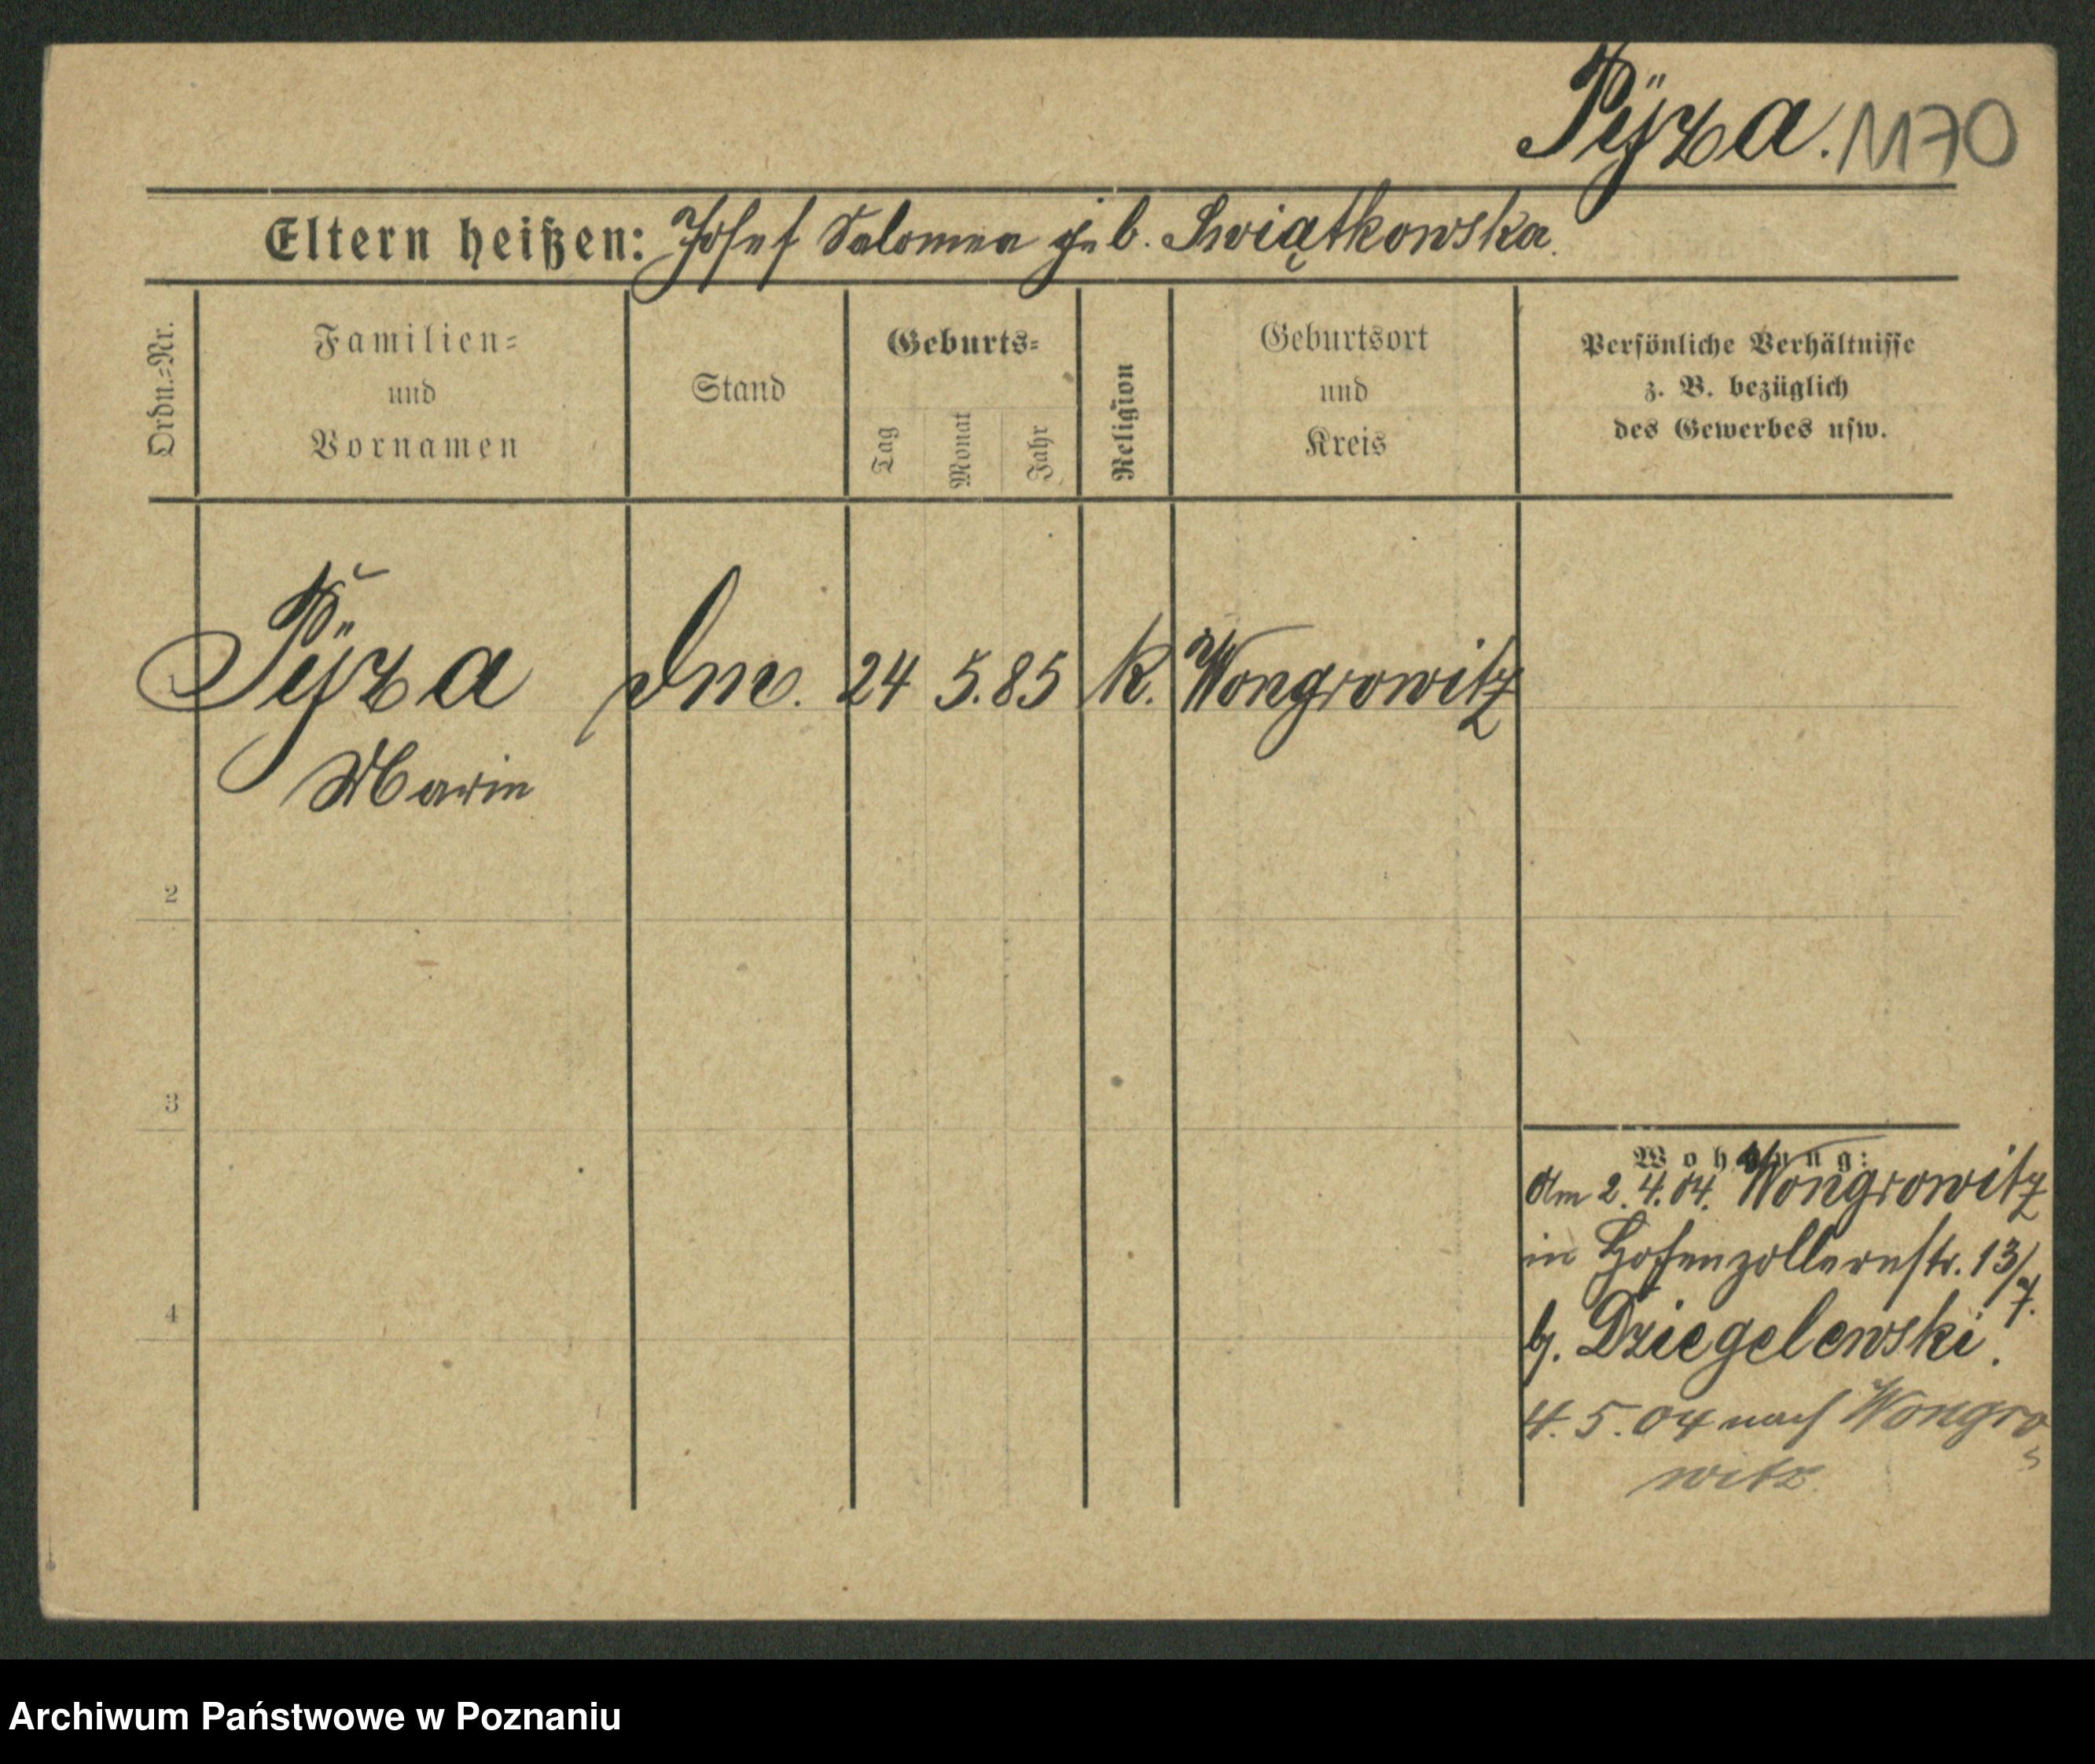 Pÿza. 1170
Eltern heißen: Josef Salomea geb. Swiątkowska.
Ordn.=Nr.
Familien=
und
Vornamen
Stand
Geburts=
Tag
Monat
Jahr
Religion
Geburtsort
und
Kreis
Persönliche Verhältnisse
z. B. bezüglich
des Gewerbes usw.
1 Pÿza 24 5. 85 k. Wongrowitz
Marie
2
3
4
Wohnung:
Am 2.4.04. Wongrowitz
in Hohenzollernstr. 13/7.
b. Dziegelewski.
4. 5. 04 nach Wongro=
witz.
Archiwum Państwowe w Poznaniu